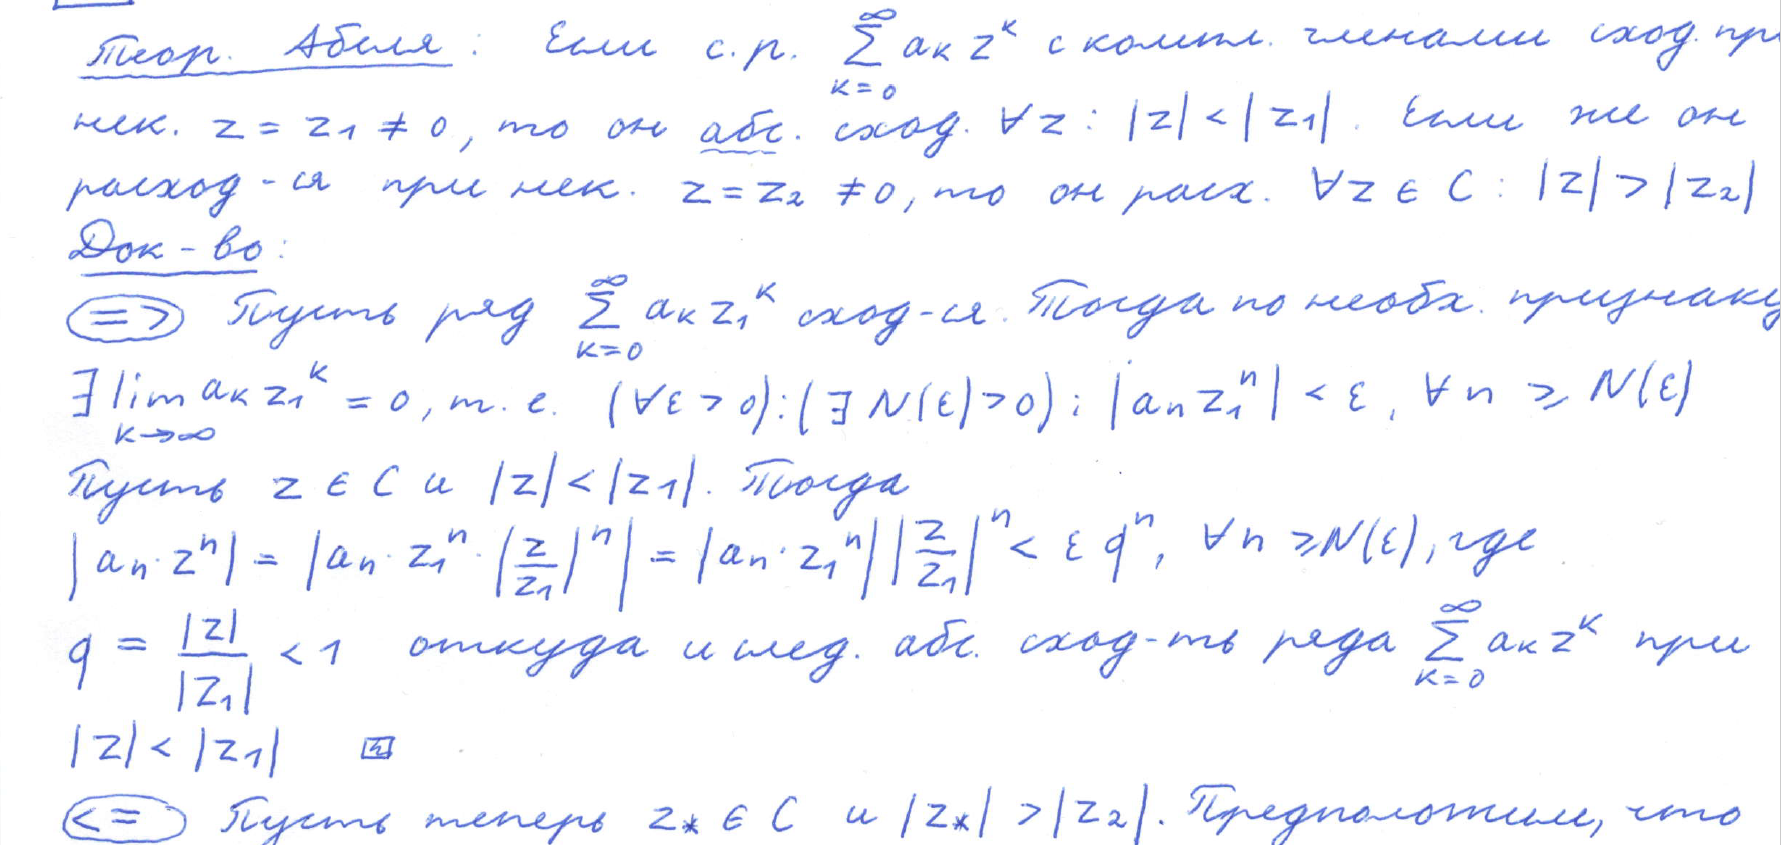 Теор. Абеля: Если с.р. ∑_{k=0}^{∞} a_k z^k с компл. членами сход. при
нек. z = z_1 ≠ 0, то он абс. сход. ∀z : |z| < |z_1|. Если же он
расход-ся при нек. z = z_2 ≠ 0, то он расх. ∀z ∈ C : |z| > |z_2|
Док-во:
=> Пусть ряд ∑_{k=0}^{∞} a_k z_1^k сход-ся. Тогда по необх. признаку
∃ lim_{k→∞} a_k z_1^k = 0, т.е. (∀ε > 0) : (∃ N(ε) > 0) : |a_n z_1^n| < ε, ∀n ≥ N(ε)
Пусть z ∈ C и |z| < |z_1|. Тогда
|a_n · z^n| = |a_n · z_1^n · (z/z_1)^n| = |a_n · z_1^n| |z/z_1|^n < ε q^n, ∀n ≥ N(ε), где
q = |z|/|z_1| < 1 откуда и след. абс. сход-ть ряда ∑_{k=0}^{∞} a_k z^k при
|z| < |z_1|
<= Пусть теперь z_* ∈ C и |z_*| > |z_2|. Предположим, что